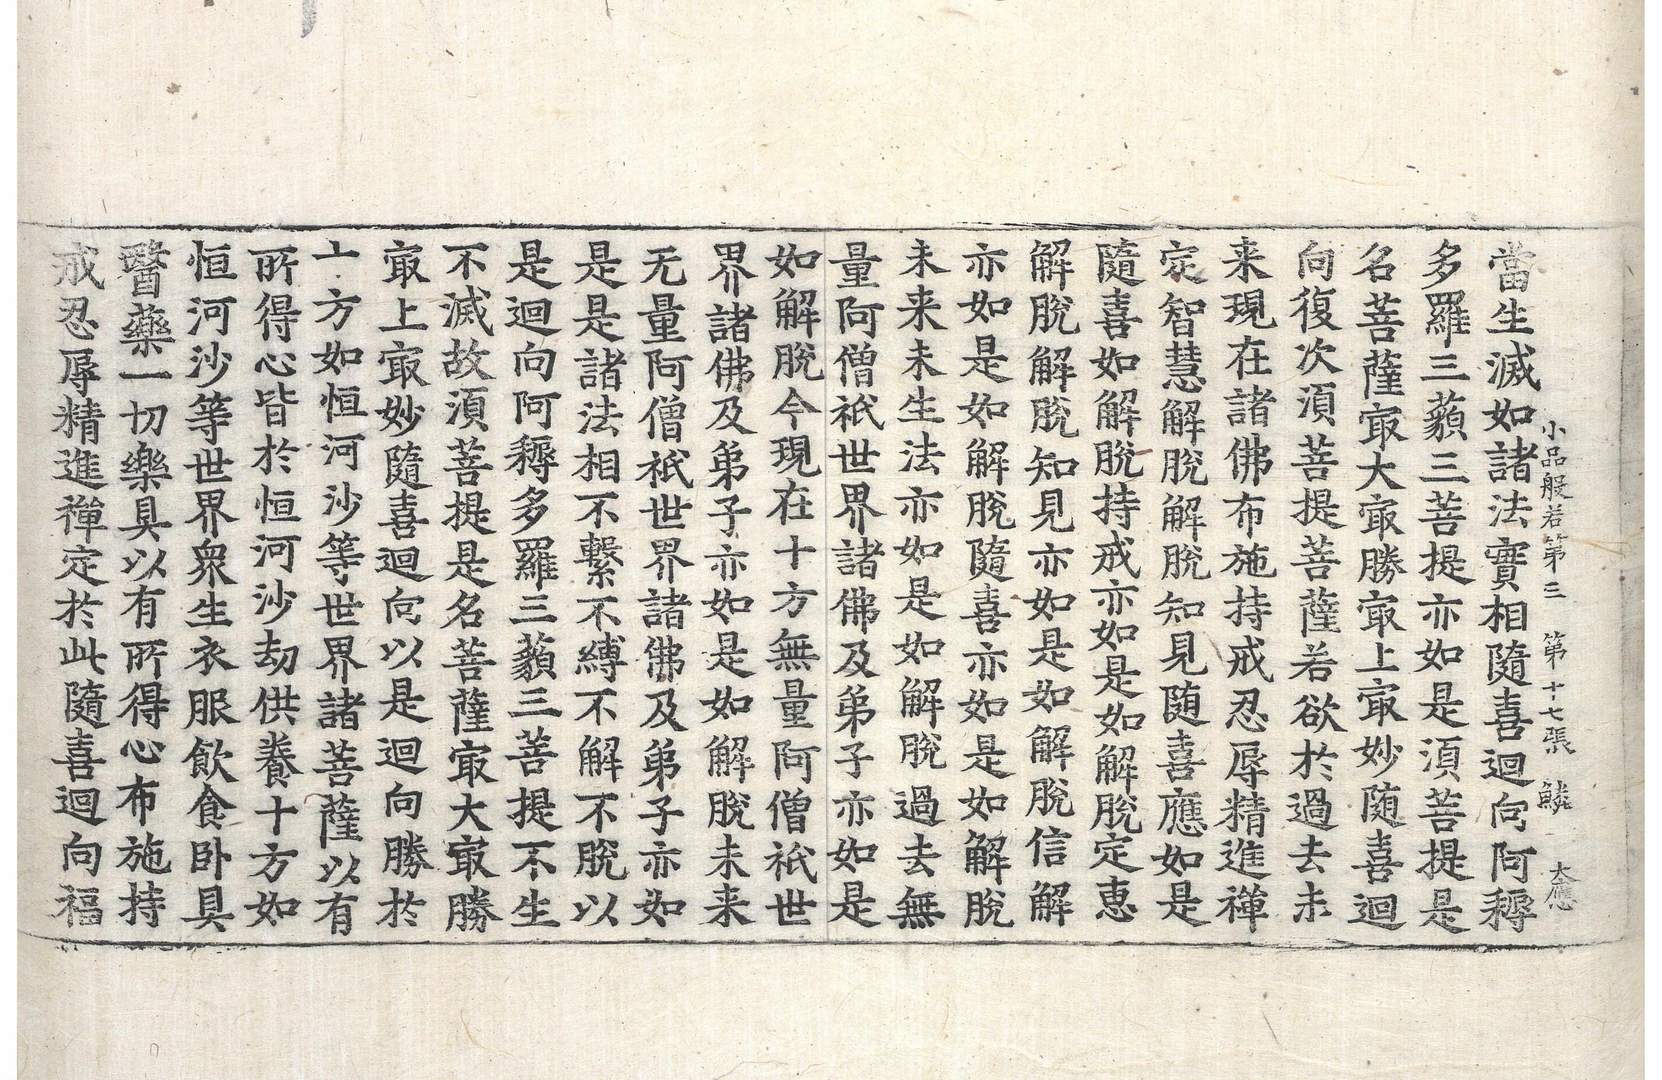 小品般若第三　第十七張　鱗　大應
當生滅如諸法實相隨喜迴向阿耨
多羅三藐三菩提亦如是湏菩提是
名菩薩㝡大㝡勝㝡上㝡妙随喜迴
向復次湏菩提菩薩若欲於過去未
来現在諸佛布施持戒忍辱精進禪
定智慧解脫解脫知見随喜應如是
隨喜如解脫持戒亦如是如解脫定恵
解脫解脫知見亦如是如解脫信解
亦如是如解脫隨喜亦如是如解脫
未来未生法亦如是如解脫過去無
量阿僧祇世界諸佛及弟子亦如是
如解脫今現在十方無量阿僧祇世
界諸佛及弟子亦如是如解脫未来
无量阿僧祇世界諸佛及弟子亦如
是是諸法相不繫不縛不解不脫以
是迴向阿耨多羅三藐三菩提不生
不滅故湏菩提是名菩薩㝡大㝡勝
㝡上㝡妙隨喜迴向以是迴向勝於
十方如恒河沙等世界諸菩薩以有
所得心皆於恒河沙劫供養十方如
恒河沙等世界衆生衣服飲食卧具
醫藥一切樂具以有所得心布施持
戒忍辱精進禪定於此隨喜迴向福